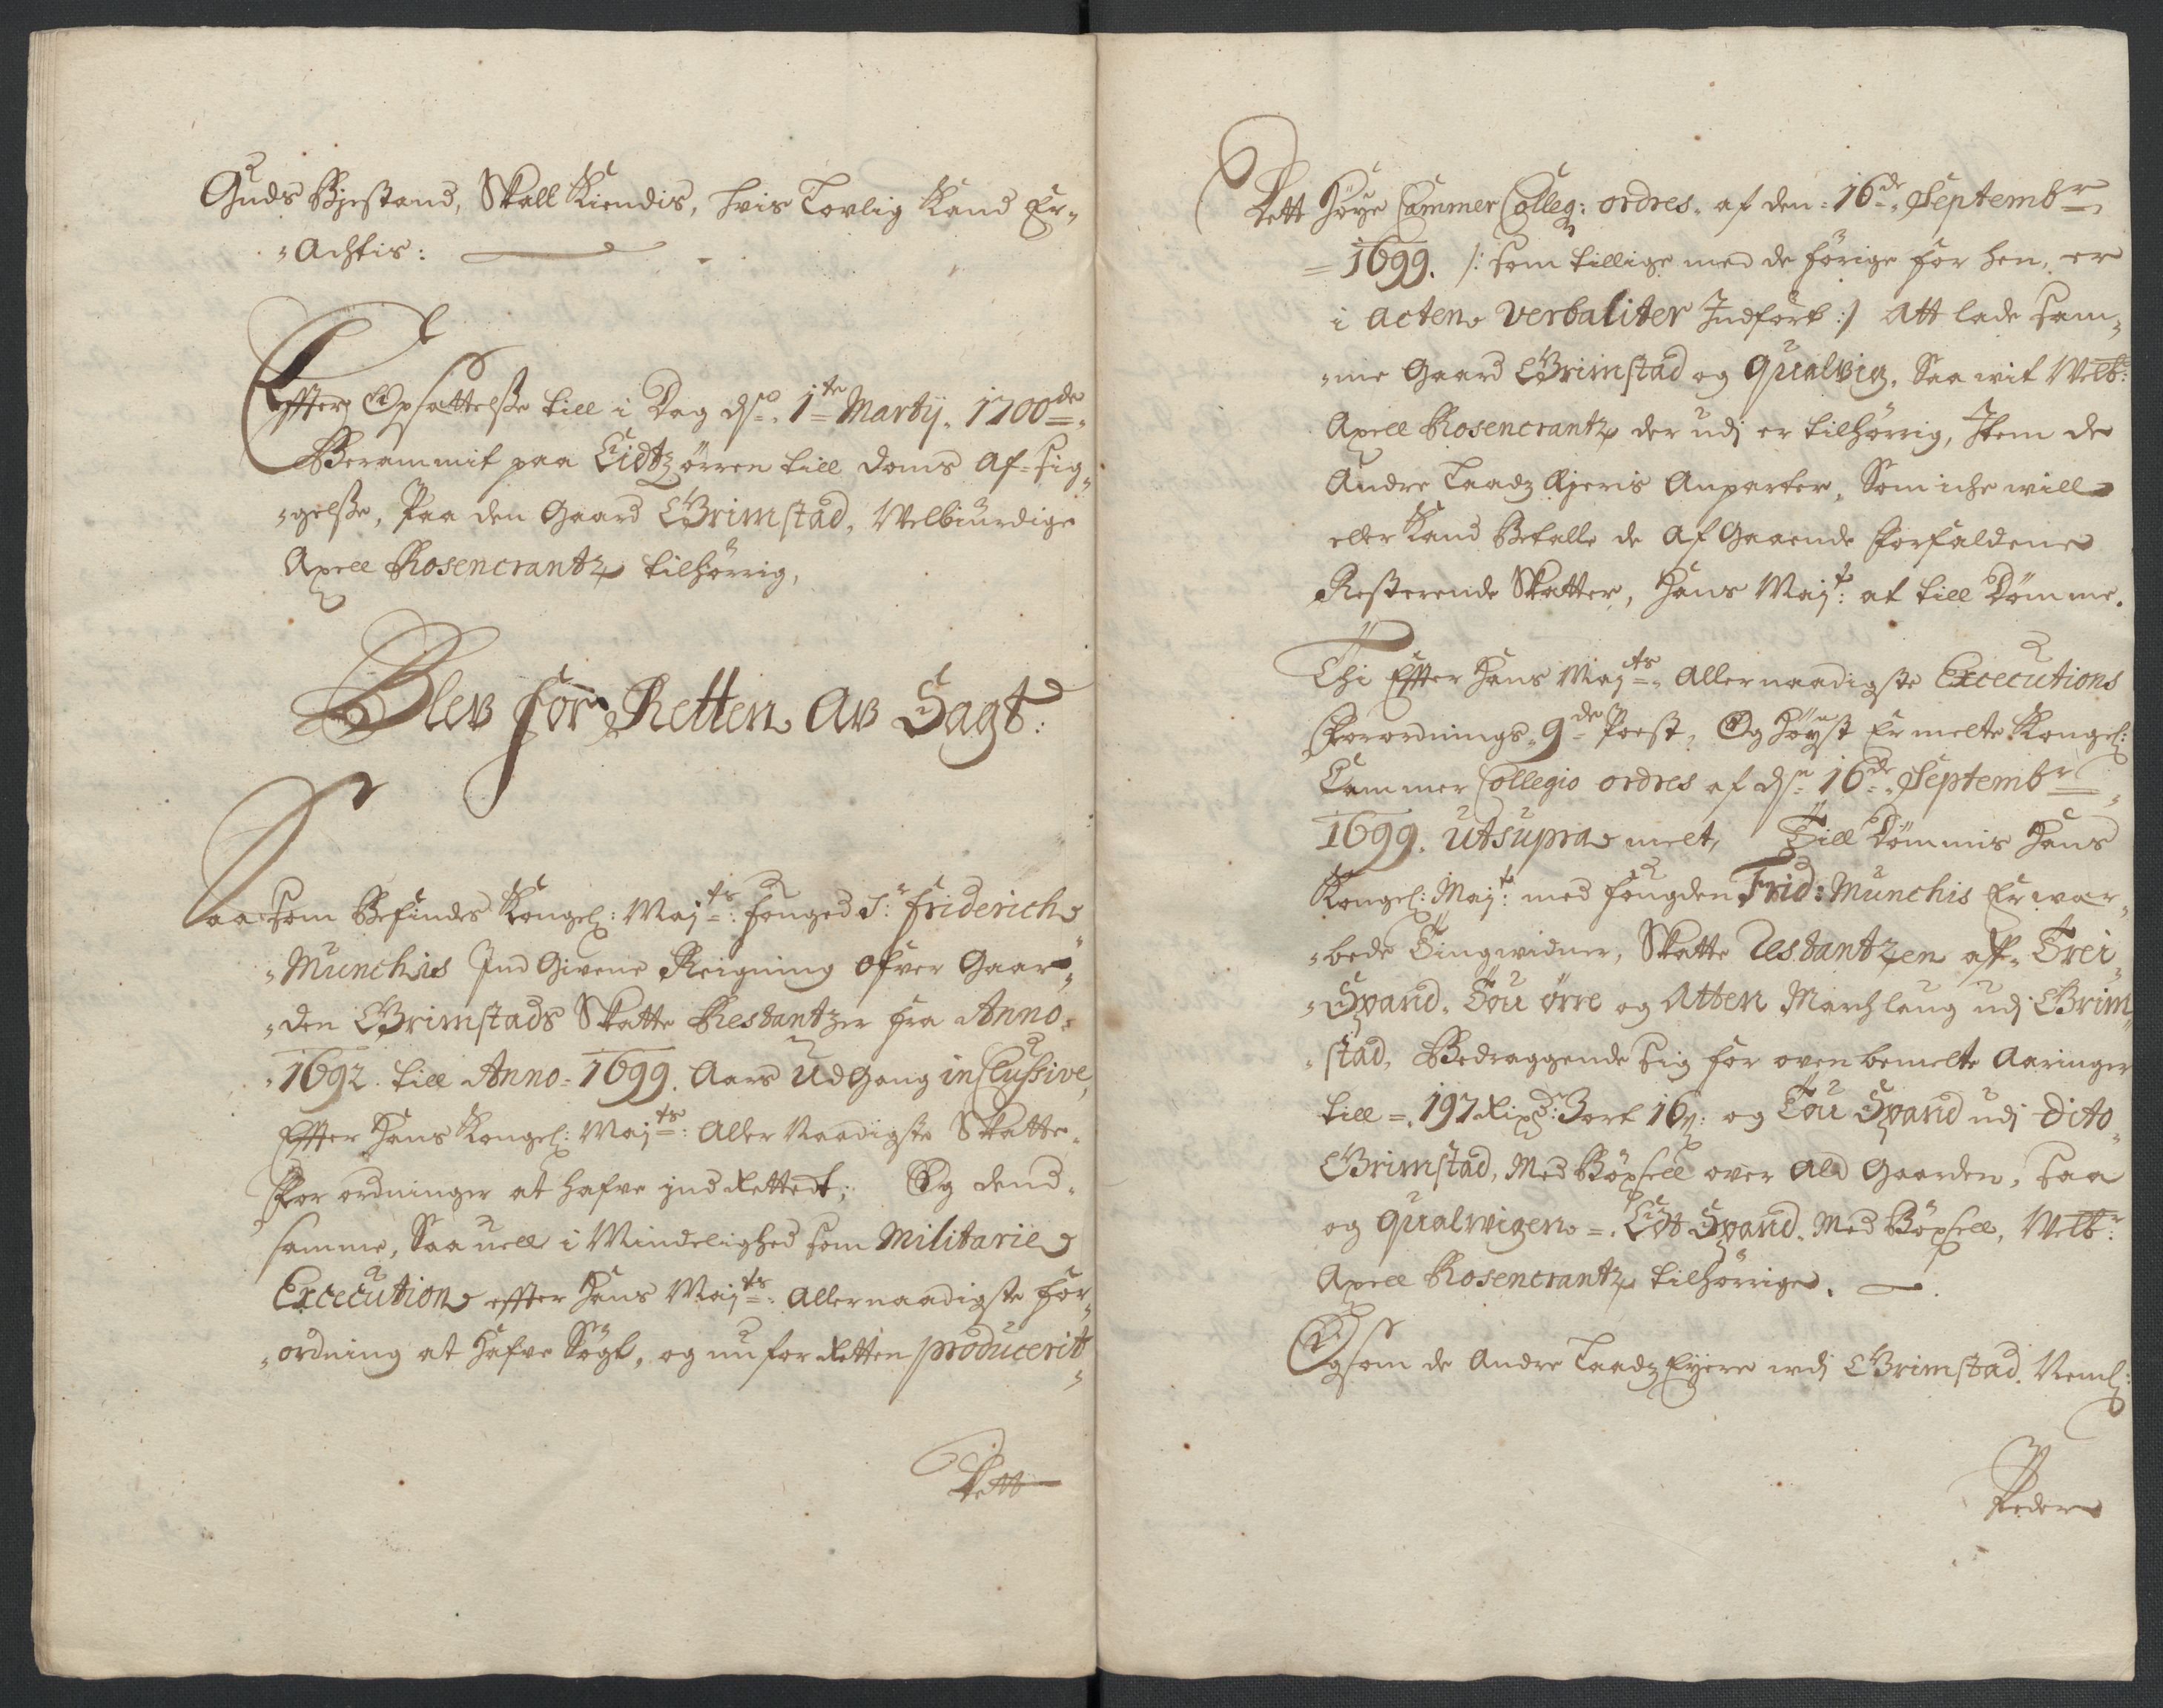 Guds Bjestand, Skall Kiendis, hvis Lovlig Kand Er-
-Achtis:
Effter Opsattelsse till i Dag dso. 1te Martij. 1700de.
Berammit paa Eidtzørren till Doms af-sig-
-gelsse, Paa den Gaard Grimstad, Welbiurdige
Axell Rosencrantz tilhørrig,
Blev for Retten av Sagt:
Saa som Befindes Kongel: Majts: fouged Sr: Friderich
Munchis Ind Givene Reigning ofver Gaar-
-den Grimstads Skatte Restantzer fra Anno
1692. till Anno 1699. Aars Udgang inclussive,
Effter Hans Kongel: Majts: Aller Naadigste Skatte-
For ordninger at hafve jnd Rettedt; Og dend-
samme, Saa vell i Mindelighed som Militarie
Excecution effter Hans Majts: Allernaadigste for-
-ordning at Hafve Søgt, og nu for Retten producerit
Dett
Dett Høye Cammer Colleg: ordres. af den 16de. Septembr
1699. /: som tillige med de førige for hen, er
i Acten Verbaliter Indført :/ Att lade sam-
-me Gaard Grimstad og Qualvig. Saa wit Welb:
Axell Rosencrantz der udj er tilhørrig, Item de
Andre Laadz Ejeris Anparter, Som iche will
eller Kand Betalle de Af Gaaende Forfaldene
Resterende Skatter, Hans Majt: at till Dømme.
Thi Effter Hans Majts. Allernaadigste Excecutions
Forordnings 9de Post, Og Høyst Er melte Kongel:
Cammer Collegio ordres af dn 16de. Septembr
1699. utsupra melt, Till Dømmis Hans
Kongel: Majt: med fougden Frid: Munchis Er war-
-bede Tingwidner, Skatte Restantzen aff. Trei
Spand. Tou ørre og Atten Marchlaug udj Grim-
-stad, Bedraggende sig for oven bemelte Aaringer
till 197 Rixd: 3 ort 16 s: og Tou Spand udj dito
Grimstad, Med Bøxsell over Ald Gaarden, saa
og Qualwigen Edt Spand. Med Bøxsell, Welb:
Axell Rosencrantz tilhørrige.
Og som de Andre Laadz Eyere udj Grimstad. Neml:
Peder